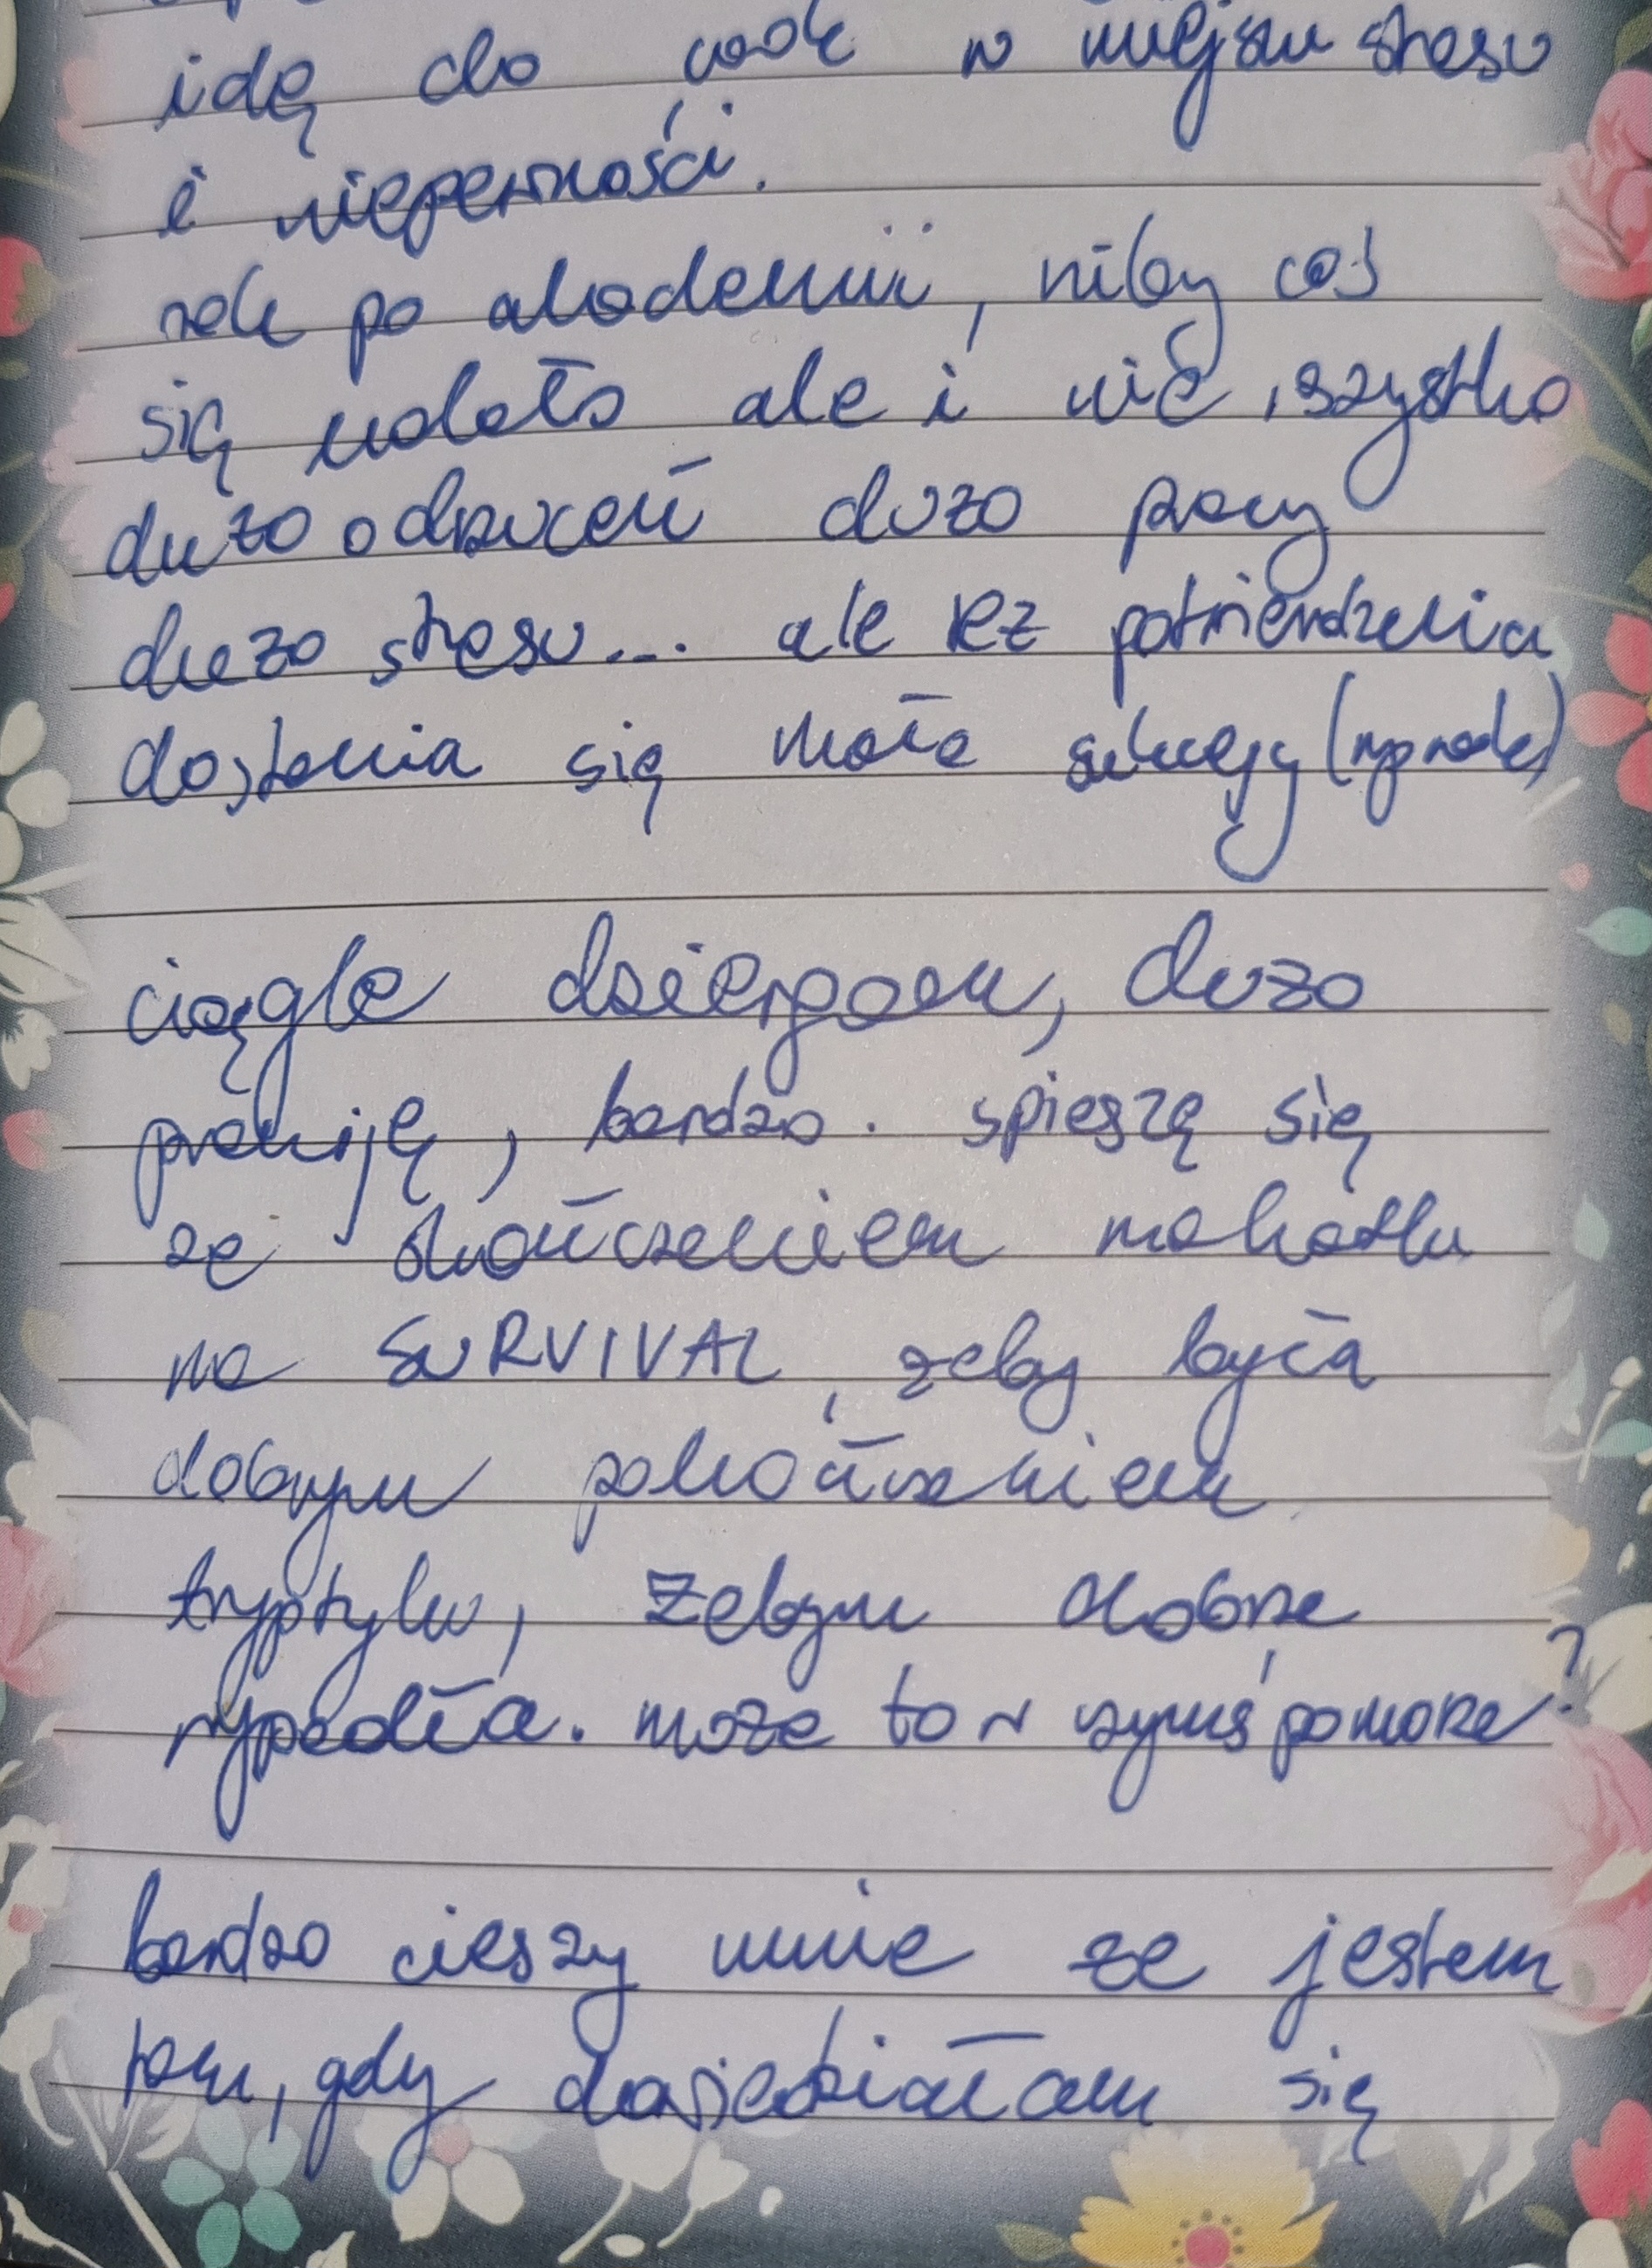 idę do wode w miejscu stresu
i niepewności.
rok po akademii, niby coś
się udało ale i nie, wszystko
duzo odrzuceń duzo pracy
duzo stresu... ale też potwierdzenia
dostania się małe sukcesy (np rada)
ciągle dziergam, duzo
pracuję, bardzo. spieszę się
ze skończeniem makatki
na SURVIVAL, zeby była
dobrym zakończeniem
tryptyku, żebym dobrze
wypadła. może to w czymś pomoze?
bardzo cieszy mnie ze jestem
tam, gdy dowiedziałam się